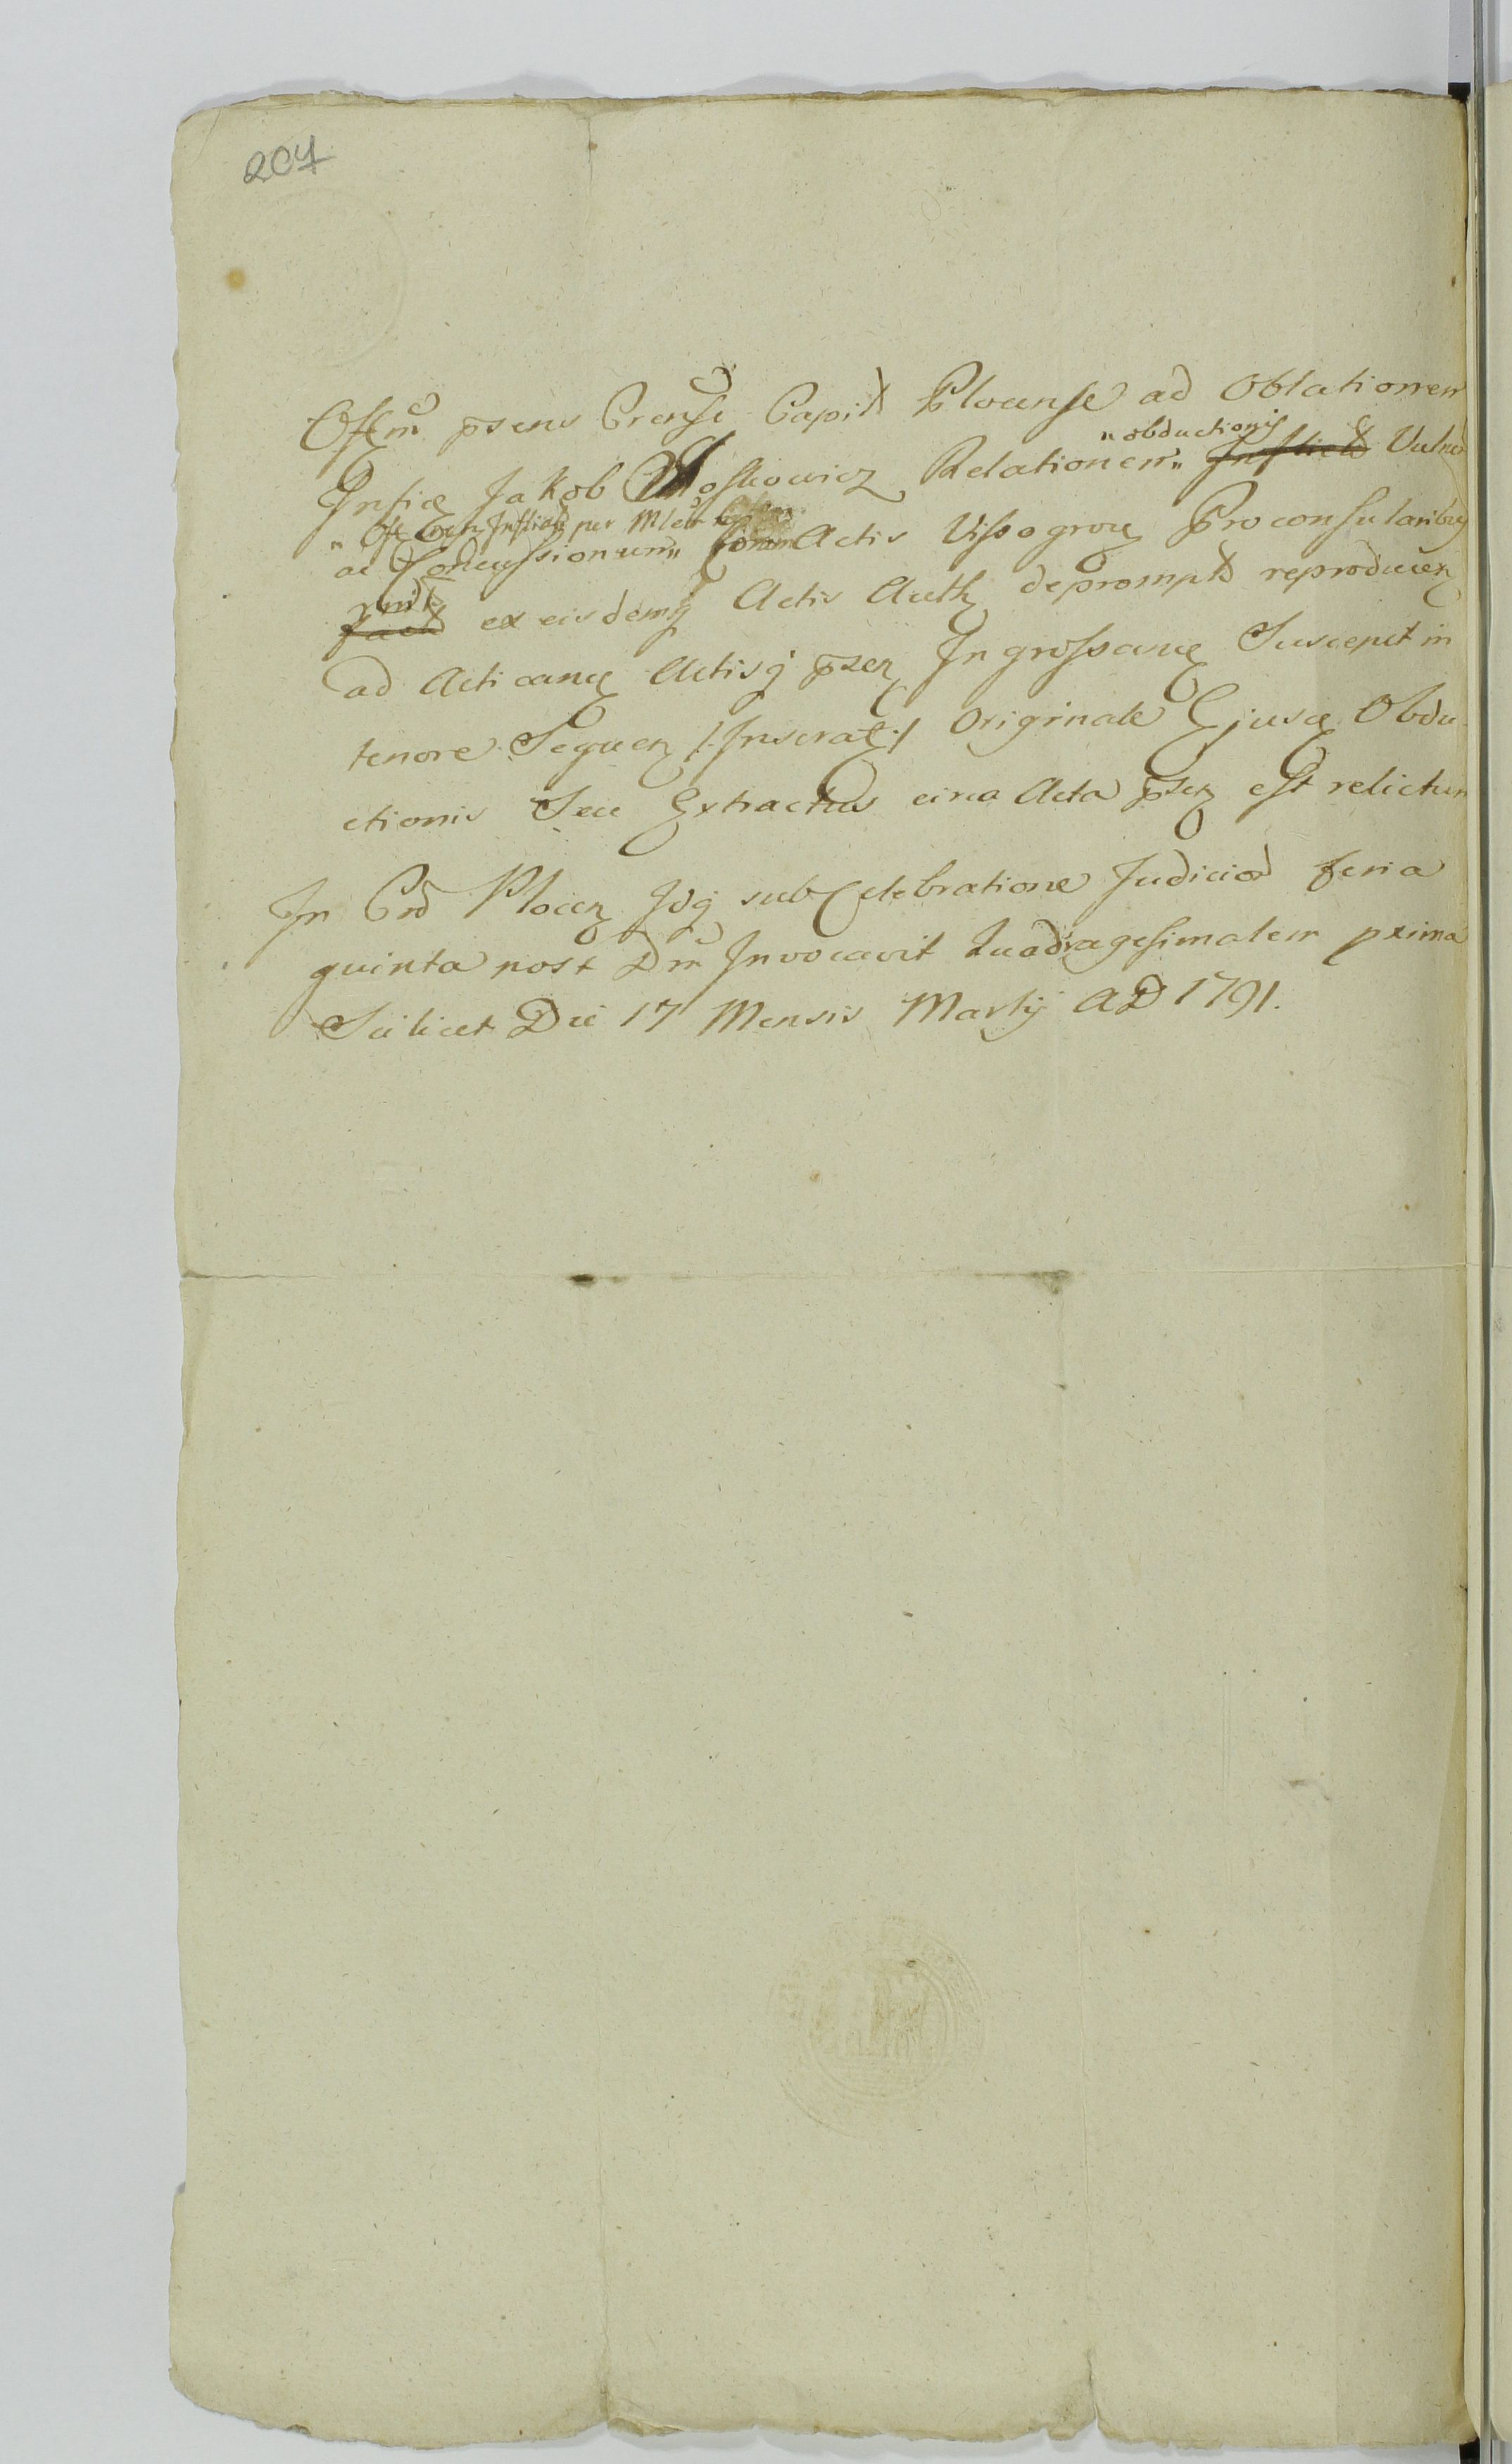 207
Offm psens Crense Capit Plocense ad Oblationem
Infid Jakob Moskowicz Relationem „obductionis Inflict Vulne
„ Off Inflict per
ac Concussionum„ Coram Actis Vissogrod Proconsularibus
fact ex eisdemq Actis Auth deprompt reproducen
ad Acticand Actisq psen Ingrossand Suscepit in
tenore Sequen /:Inserat:/ Originale Ejusd Obdu-
ctionis Seu Extractus circa Acta psen est relictum
In Crd Plocen Idq sub Celebratione Judicior feria
quinta post Dm Invocavit Quadragesimalem prima
Scilicet Die 17 Mensis Martij AD 1791.